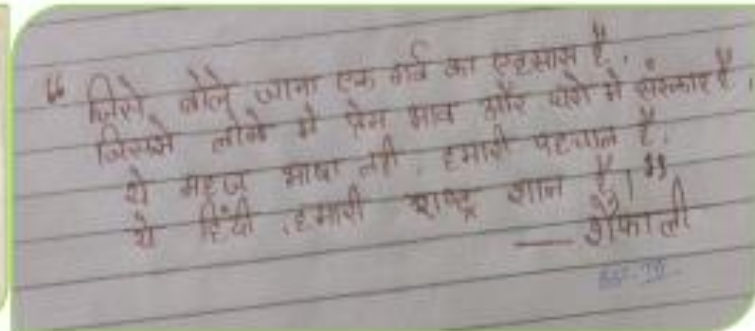 “ जिसे बोले जाना एक गर्व का एहसास है,
जिससे लोगो मे प्रेम भाव और घरो मे संस्कार है,
ये महज भाषा नही, हमारी पहचान है,
ये हिंदी, हमारी राष्ट्र शान है।”
— शेफाली